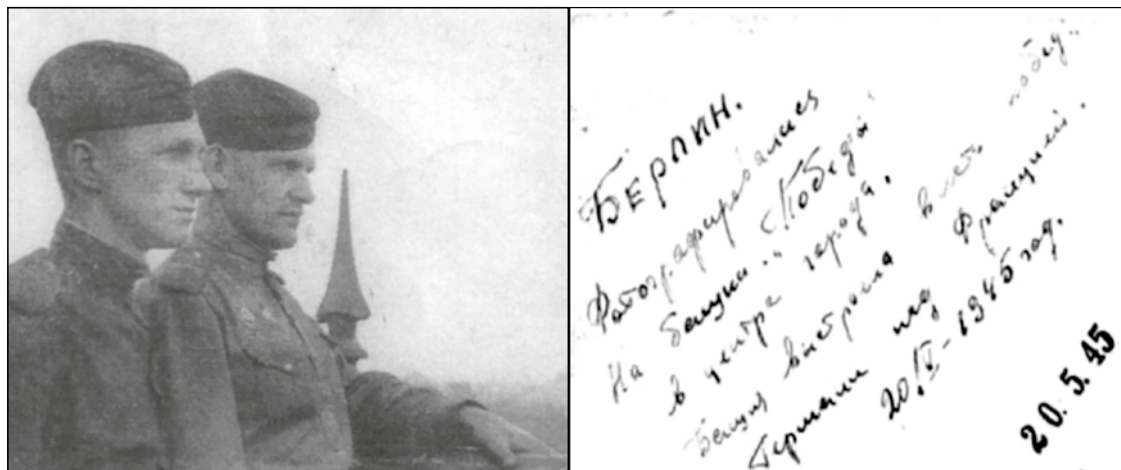 БЕРЛИН.
Фотографировались
На башни „Победы"
в центре города.
башня выстроена в честь побед.
Германии над Францией.
20/V-1945 год.
20.5.45